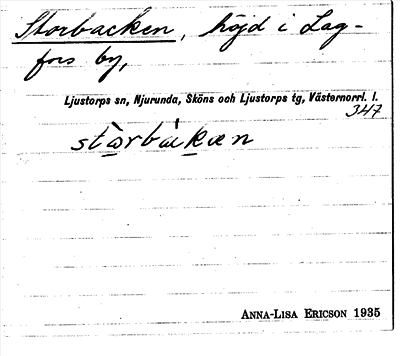 Storbacken, höjd i Lag-
fors by,
Ljustorps sn, Njurunda, Sköns och Ljustorps tg, Västernorrl. l.
347
stòrbàkæn
ANNA-LISA ERICSON 1935